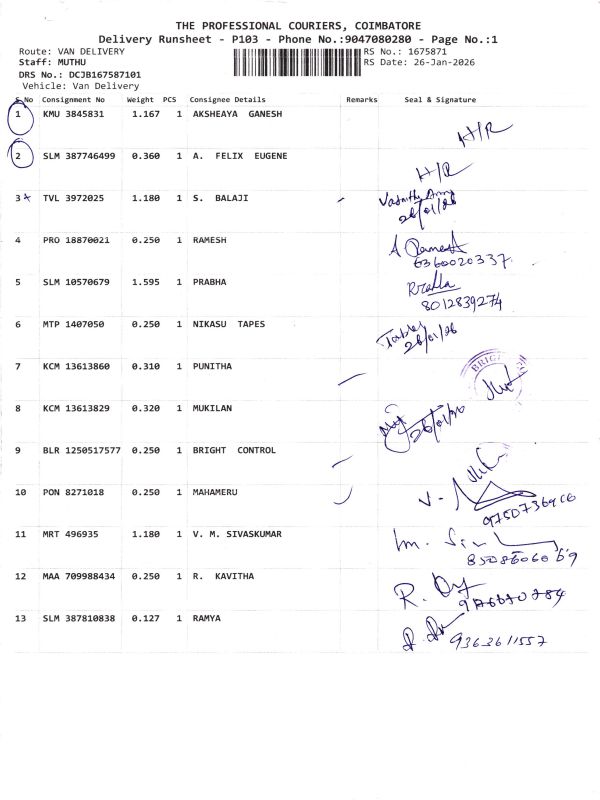 THE PROFESSIONAL COURIERS, COIMBATORE
Delivery Runsheet - P103 - Phone No.:9047080280 - Page No.:1
Route: VAN DELIVERY RS No.: 1675871
Staff: MUTHU RS Date: 26-Jan-2026
DRS No.: DCJB167587101
Vehicle: Van Delivery
S.No Consignment No Weight PCS Consignee Details Remarks Seal & Signature
1 KMU 3845831 1.167 1 AKSHEAYA GANESH H/R
2 SLM 387746499 0.360 1 A. FELIX EUGENE H/R
3 TVL 3972025 1.180 1 S. BALAJI
26/01/26
4 PRO 18870021 0.250 1 RAMESH A Ramesh
6360020337
5 SLM 10570679 1.595 1 PRABHA
8012839274
6 MTP 1407050 0.250 1 NIKASU TAPES
26/01/26
7 KCM 13613860 0.310 1 PUNITHA
8 KCM 13613829 0.320 1 MUKILAN
9 BLR 1250517577 0.250 1 BRIGHT CONTROL
10 PON 8271018 0.250 1 MAHAMERU
11 MRT 496935 1.180 1 V. M. SIVASKUMAR
12 MAA 709988434 0.250 1 R. KAVITHA
13 SLM 387810838 0.127 1 RAMYA
9363611557